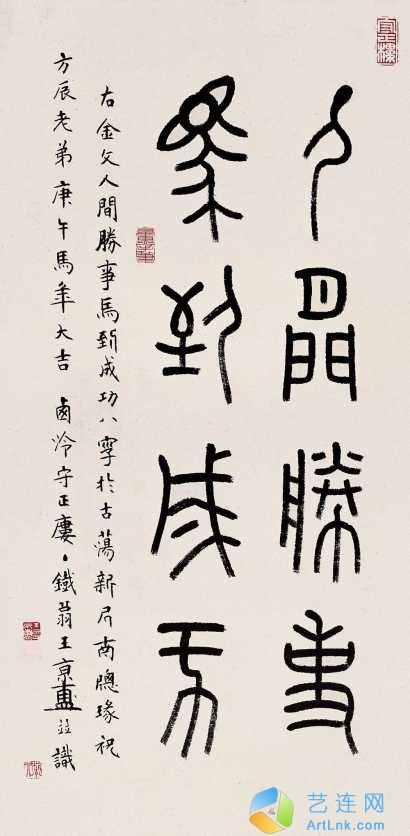 人間勝事
馬到成功
右金文人間勝事馬到成功八字於古蕩新居南牕瑑祝
方辰老弟庚午馬年大吉 西泠守正廔鐵翁王京盙並識
艺连网
ArtLnk.com